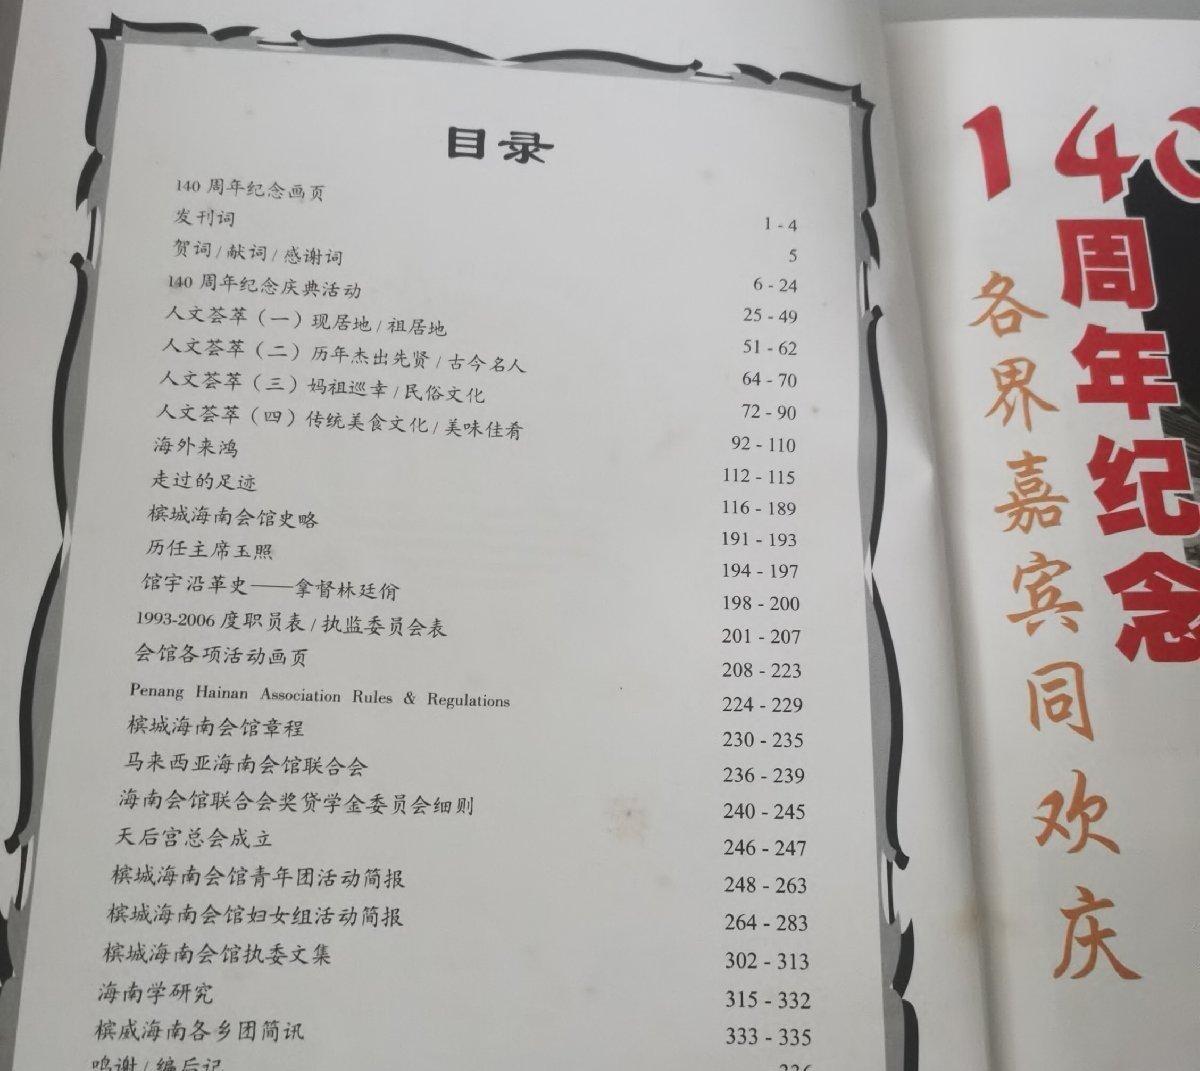 目录
140 周年纪念画页 1 - 4
发刊词 5
贺词 / 献词 / 感谢词 6 - 24
140 周年纪念庆典活动 25 - 49
人文荟萃（一）现居地 / 祖居地 51 - 62
人文荟萃（二）历年杰出先贤 / 古今名人 64 - 70
人文荟萃（三）妈祖巡幸 / 民俗文化 72 - 90
人文荟萃（四）传统美食文化 / 美味佳肴 92 - 110
海外来鸿 112 - 115
走过的足迹 116 - 189
槟城海南会馆史略 191 - 193
历任主席玉照 194 - 197
馆宇沿革史——拿督林廷俏 198 - 200
1993-2006 度职员表 / 执监委员会表 201 - 207
会馆各项活动画页 208 - 223
Penang Hainan Association Rules & Regulations 224 - 229
槟城海南会馆章程 230 - 235
马来西亚海南会馆联合会 236 - 239
海南会馆联合会奖贷学金委员会细则 240 - 245
天后宫总会成立 246 - 247
槟城海南会馆青年团活动简报 248 - 263
槟城海南会馆妇女组活动简报 264 - 283
槟城海南会馆执委文集 302 - 313
海南学研究 315 - 332
槟威海南各乡团简讯 333 - 335
鸣谢 / 编后记 336
140
周年纪念
各界嘉宾同欢庆